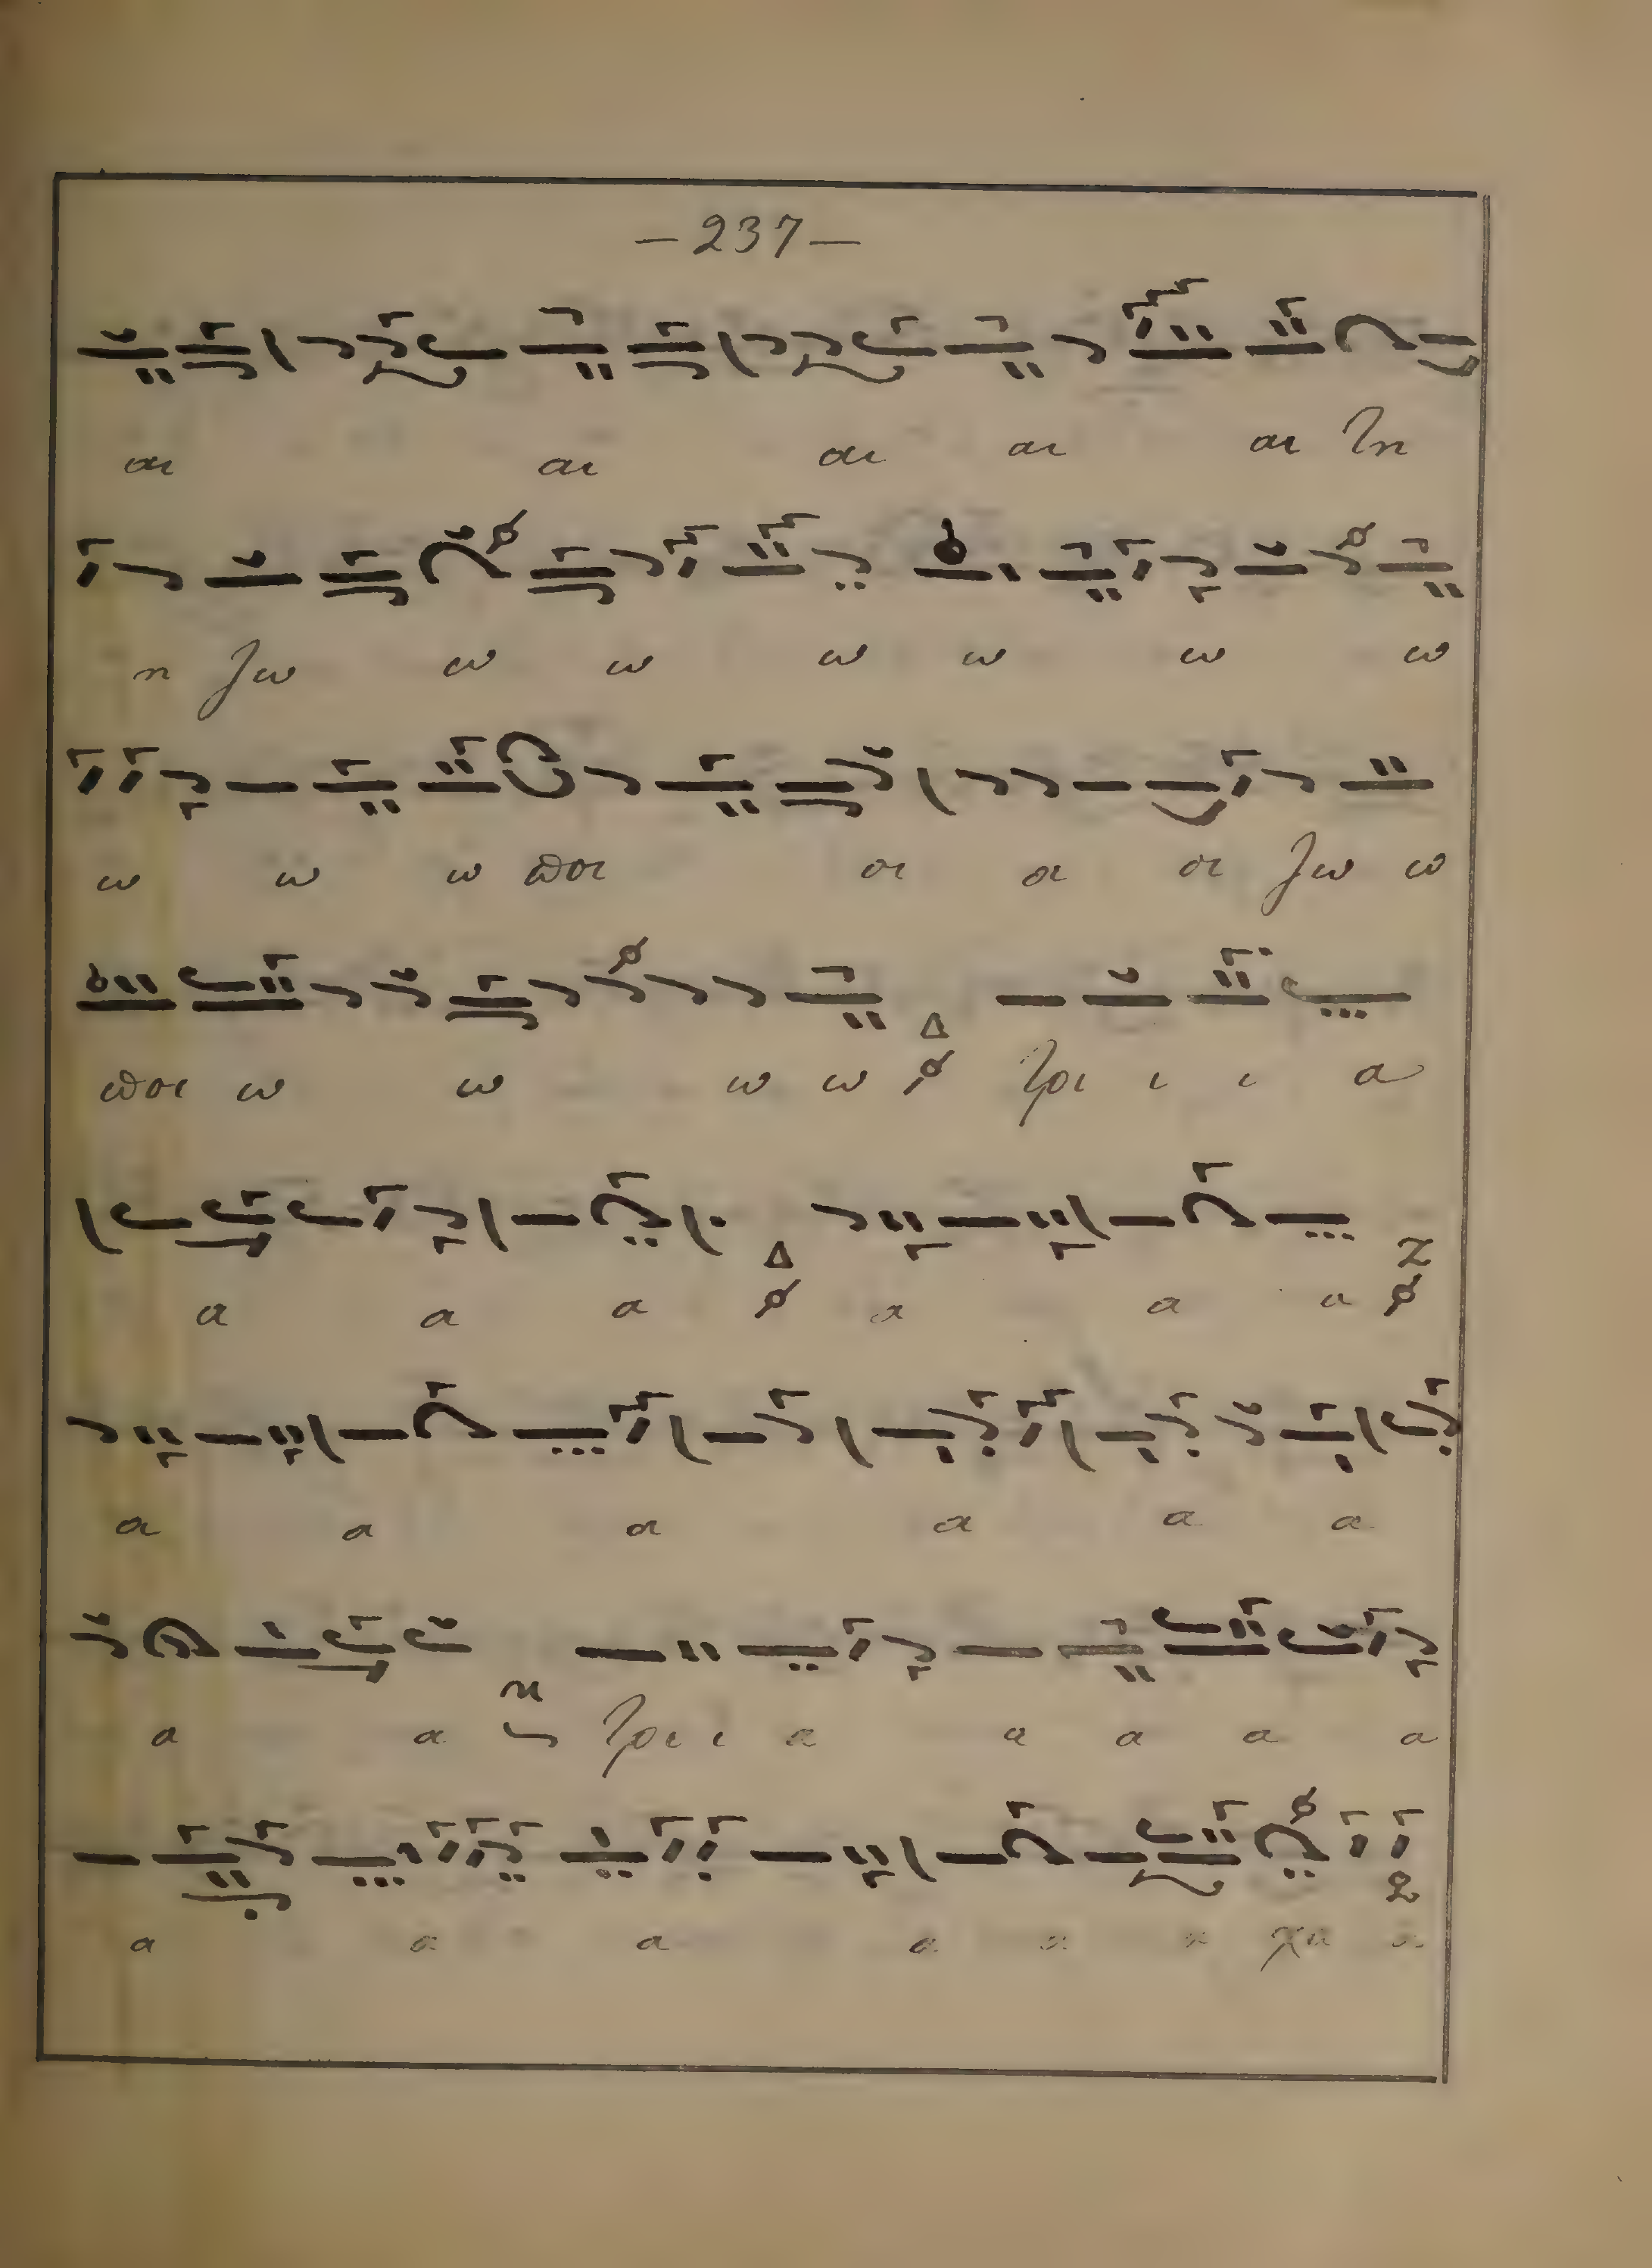 —237—
αι αι αι αι αι τη
η τω ω ω ω ω ω ω
ω ω ω ποι οι οι οι τω ω
ποι ω ω ω ω τρι ι ι α
α α α α α α
α α α α α α
α α τρι ι α α α α α
α α α α α α χα α